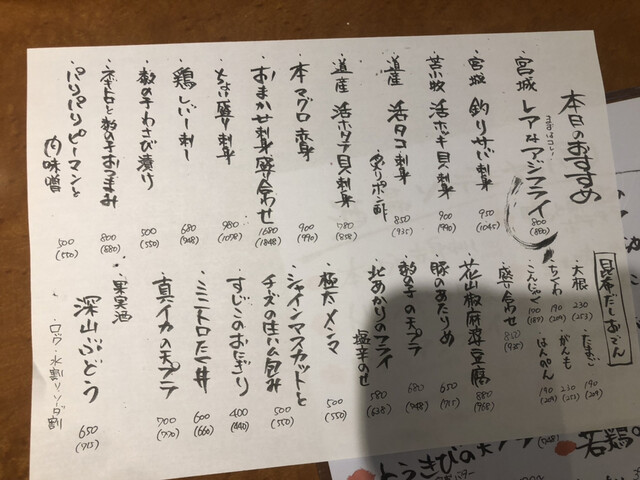 本日のおすすめ
まずはコレ!
・宮城 レアアジフライ 800 (880)
・宮城 釣りサバ刺身 950 (1045)
・苫小牧 活ホッキ貝刺身 900 (990)
・道産 活タコ刺身 炙りポン酢 850 (935)
・道産 活ホタテ貝刺身 780 (858)
・本マグロ赤身 900 (990)
・おまかせ刺身盛り合わせ 1680 (1848)
・ちょい盛り刺身 980 (1078)
・鶏レバー刺し 680 (748)
・数の子わさび漬け 500 (550)
・本ギロと数の子おつまみ 800 (880)
・パリパリピーマンと肉味噌 500 (550)
昆布だしおでん
・大根 230 (253)
・たまご 190 (209)
・ちくわ 190 (209)
・がんも 230 (253)
・こんにゃく 170 (187)
・はんぺん 190 (209)
・盛り合わせ 850 (935)
・花山椒麻婆豆腐 880 (968)
・豚のあたりめ 650 (715)
・数の子の天プラ 680 (748)
・北あかりのフライ 塩辛のせ 580 (638)
・極太メンマ 500 (550)
・シャインマスカットとチーズの生ハム包み 500 (550)
・すじこのおにぎり 400 (440)
・ミニトロたく丼 600 (660)
・真イカの天プラ 700 (770)
果実酒
深山ぶどう 650 (715)
ロック・水割り・ソーダ割
とうきびの天プラ
若鶏の